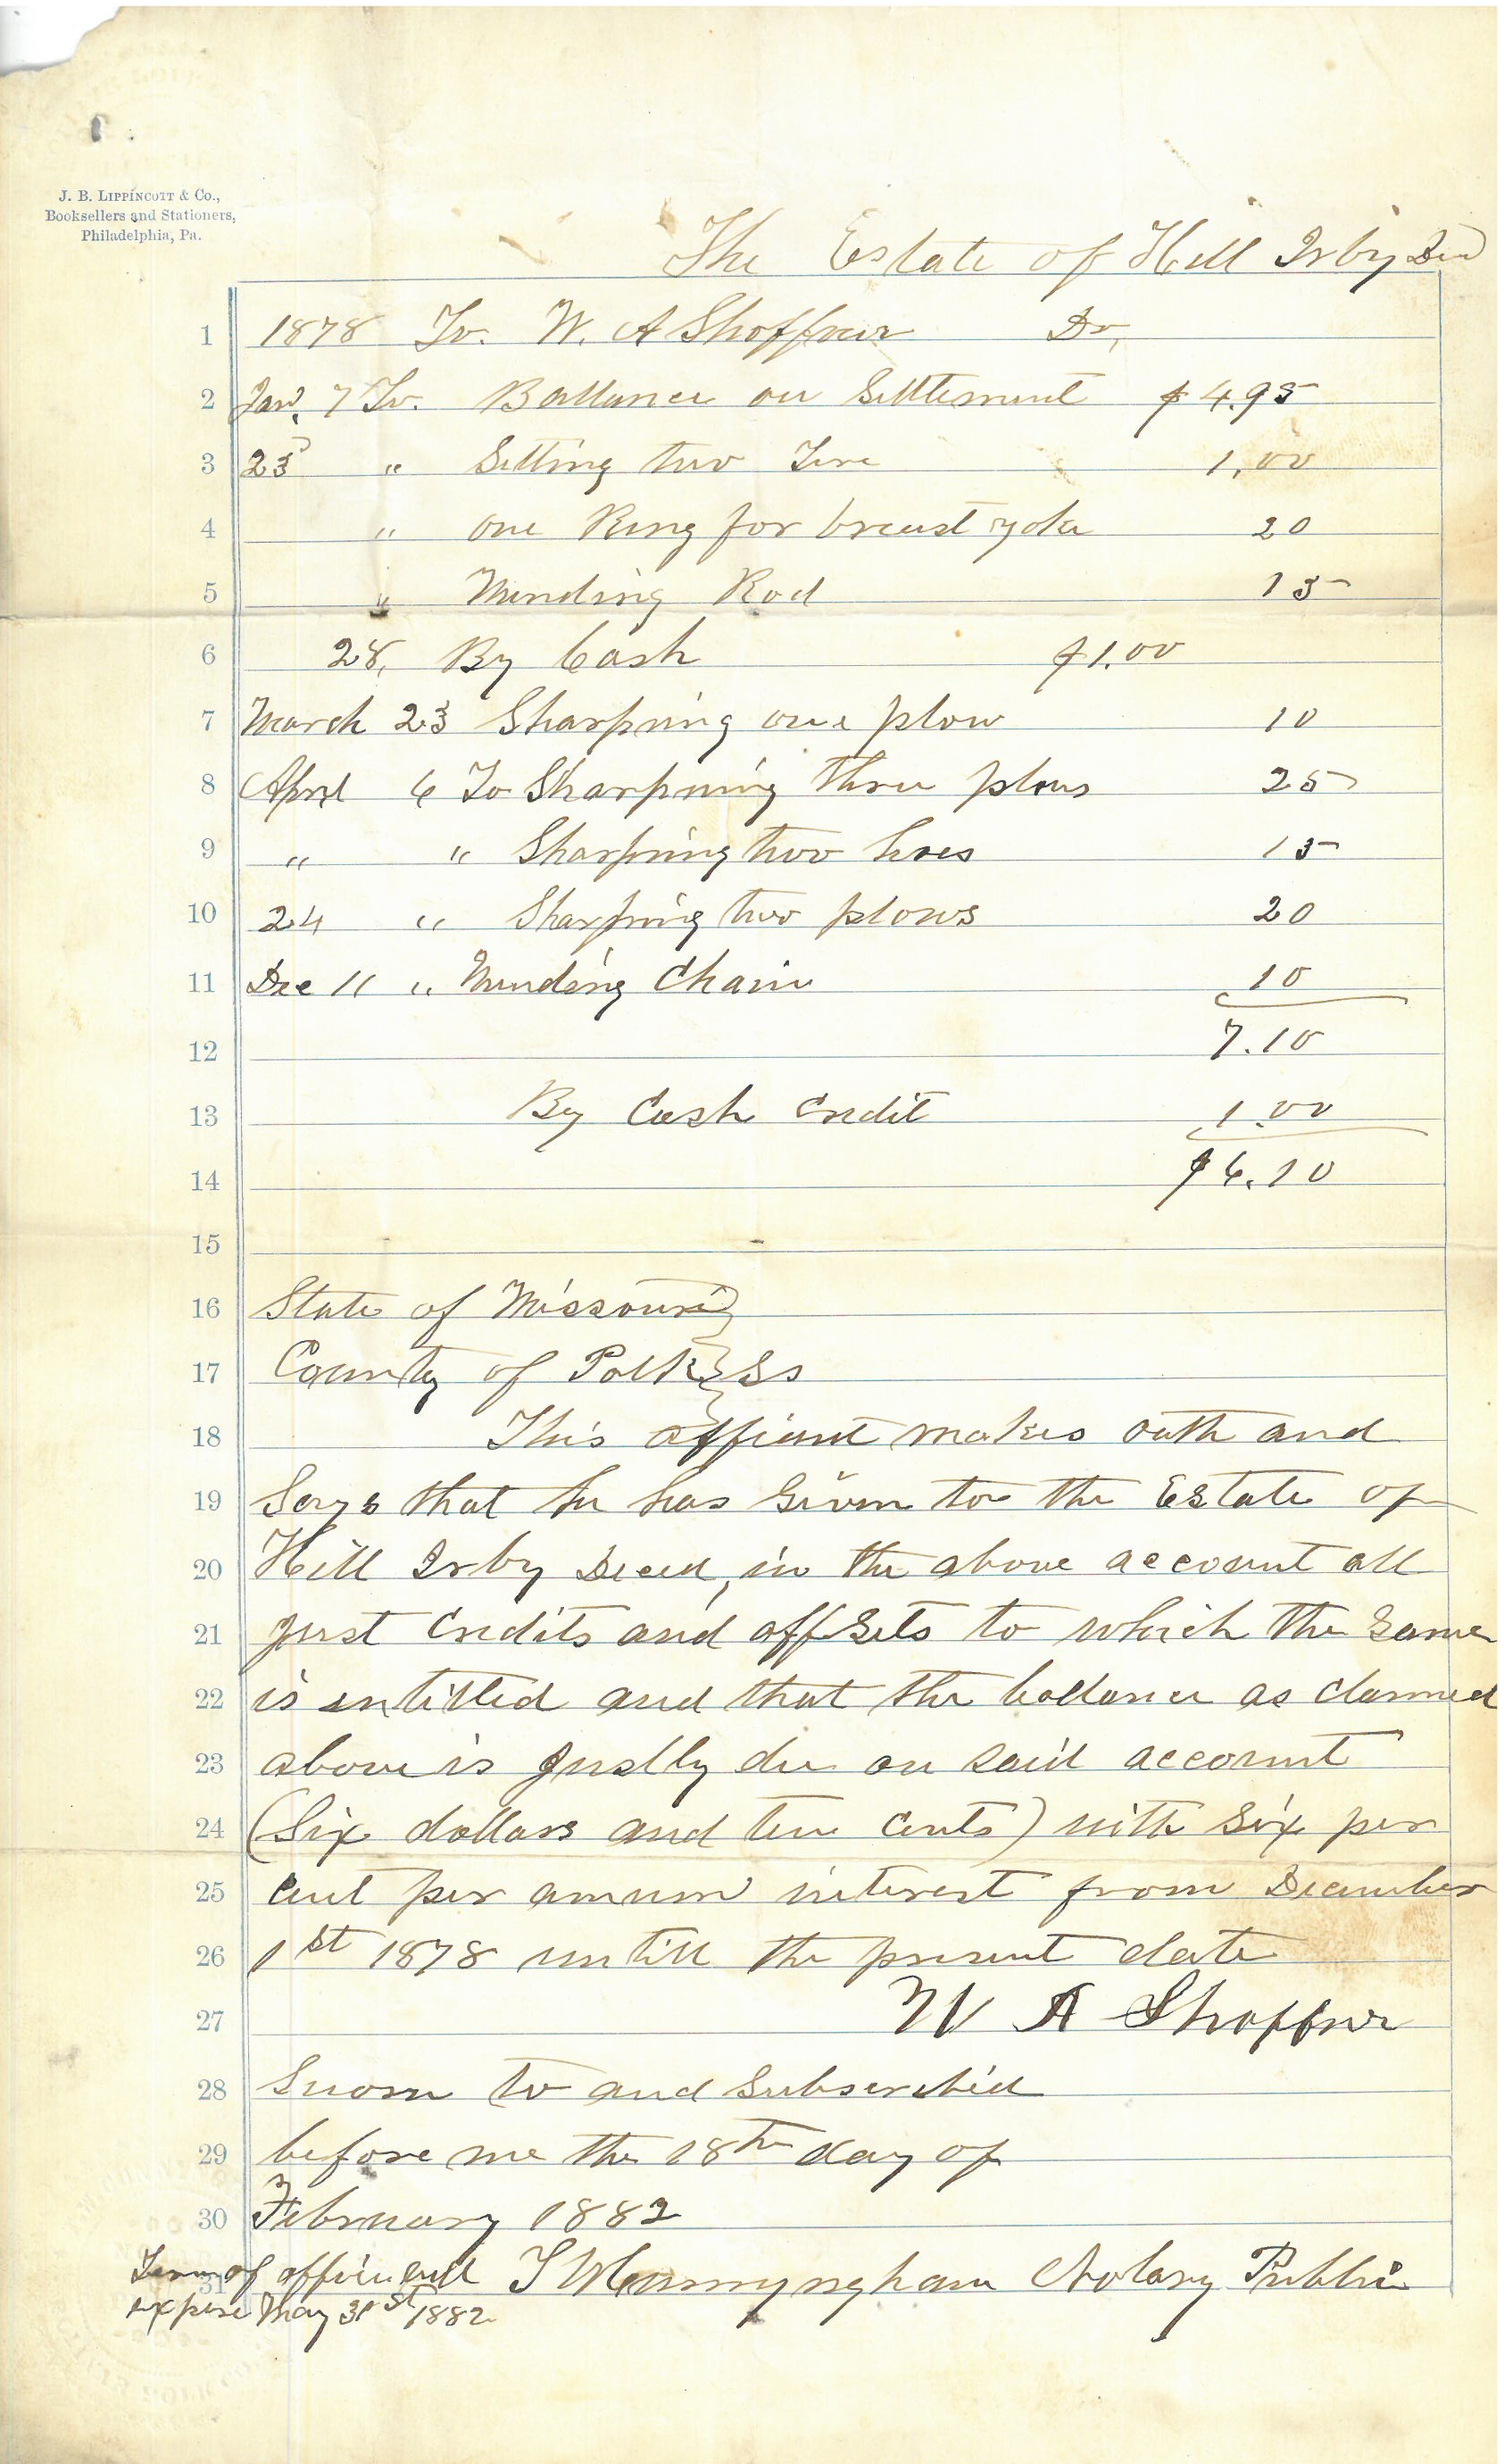 J. B. Lippincott & Co.,
Booksellers and Stationers,
Philadelphia, Pa.
The Estate of Hill Irby Decd
1 1878 To. W. A Shoffner Dr,
2 Jan. 7 To. Ballance on Settlement $ 4.95
3 25 " Setting two Tire 1.00
4 " one Ring for breast yoke 20
5 " Mending Rod 15
6 28, By Cash $1.00
7 March 23 Sharpning one plow 10
8 April 6 To Sharpning three plows 25
9 " " Sharpning two hoes 15
10 24 " Sharpning two plows 20
11 Dec 11 " Mending Chain 10
12 7.10
13 By Cash Credit 1.00
14 $6.10
15
16 State of Missouri
17 County of Polk } Ss
18 This affiant makes oath and
19 Says that he has given to the Estate of
20 Hill Irby Deced, in the above account all
21 just Credits and offsets to which the Same
22 is entitled and that the ballance as claimed
23 above is justly due on said account
24 (Six dollars and ten cents) with six per
25 cent per annum interest from December
26 1st 1878 untill the present date
27 W A Shoffner
28 Sworn to and Subscribed
29 before me the 18th day of
30 February 1882
31 Term of office will T W Cunnyngham Notary Public
expire May 31st 1882